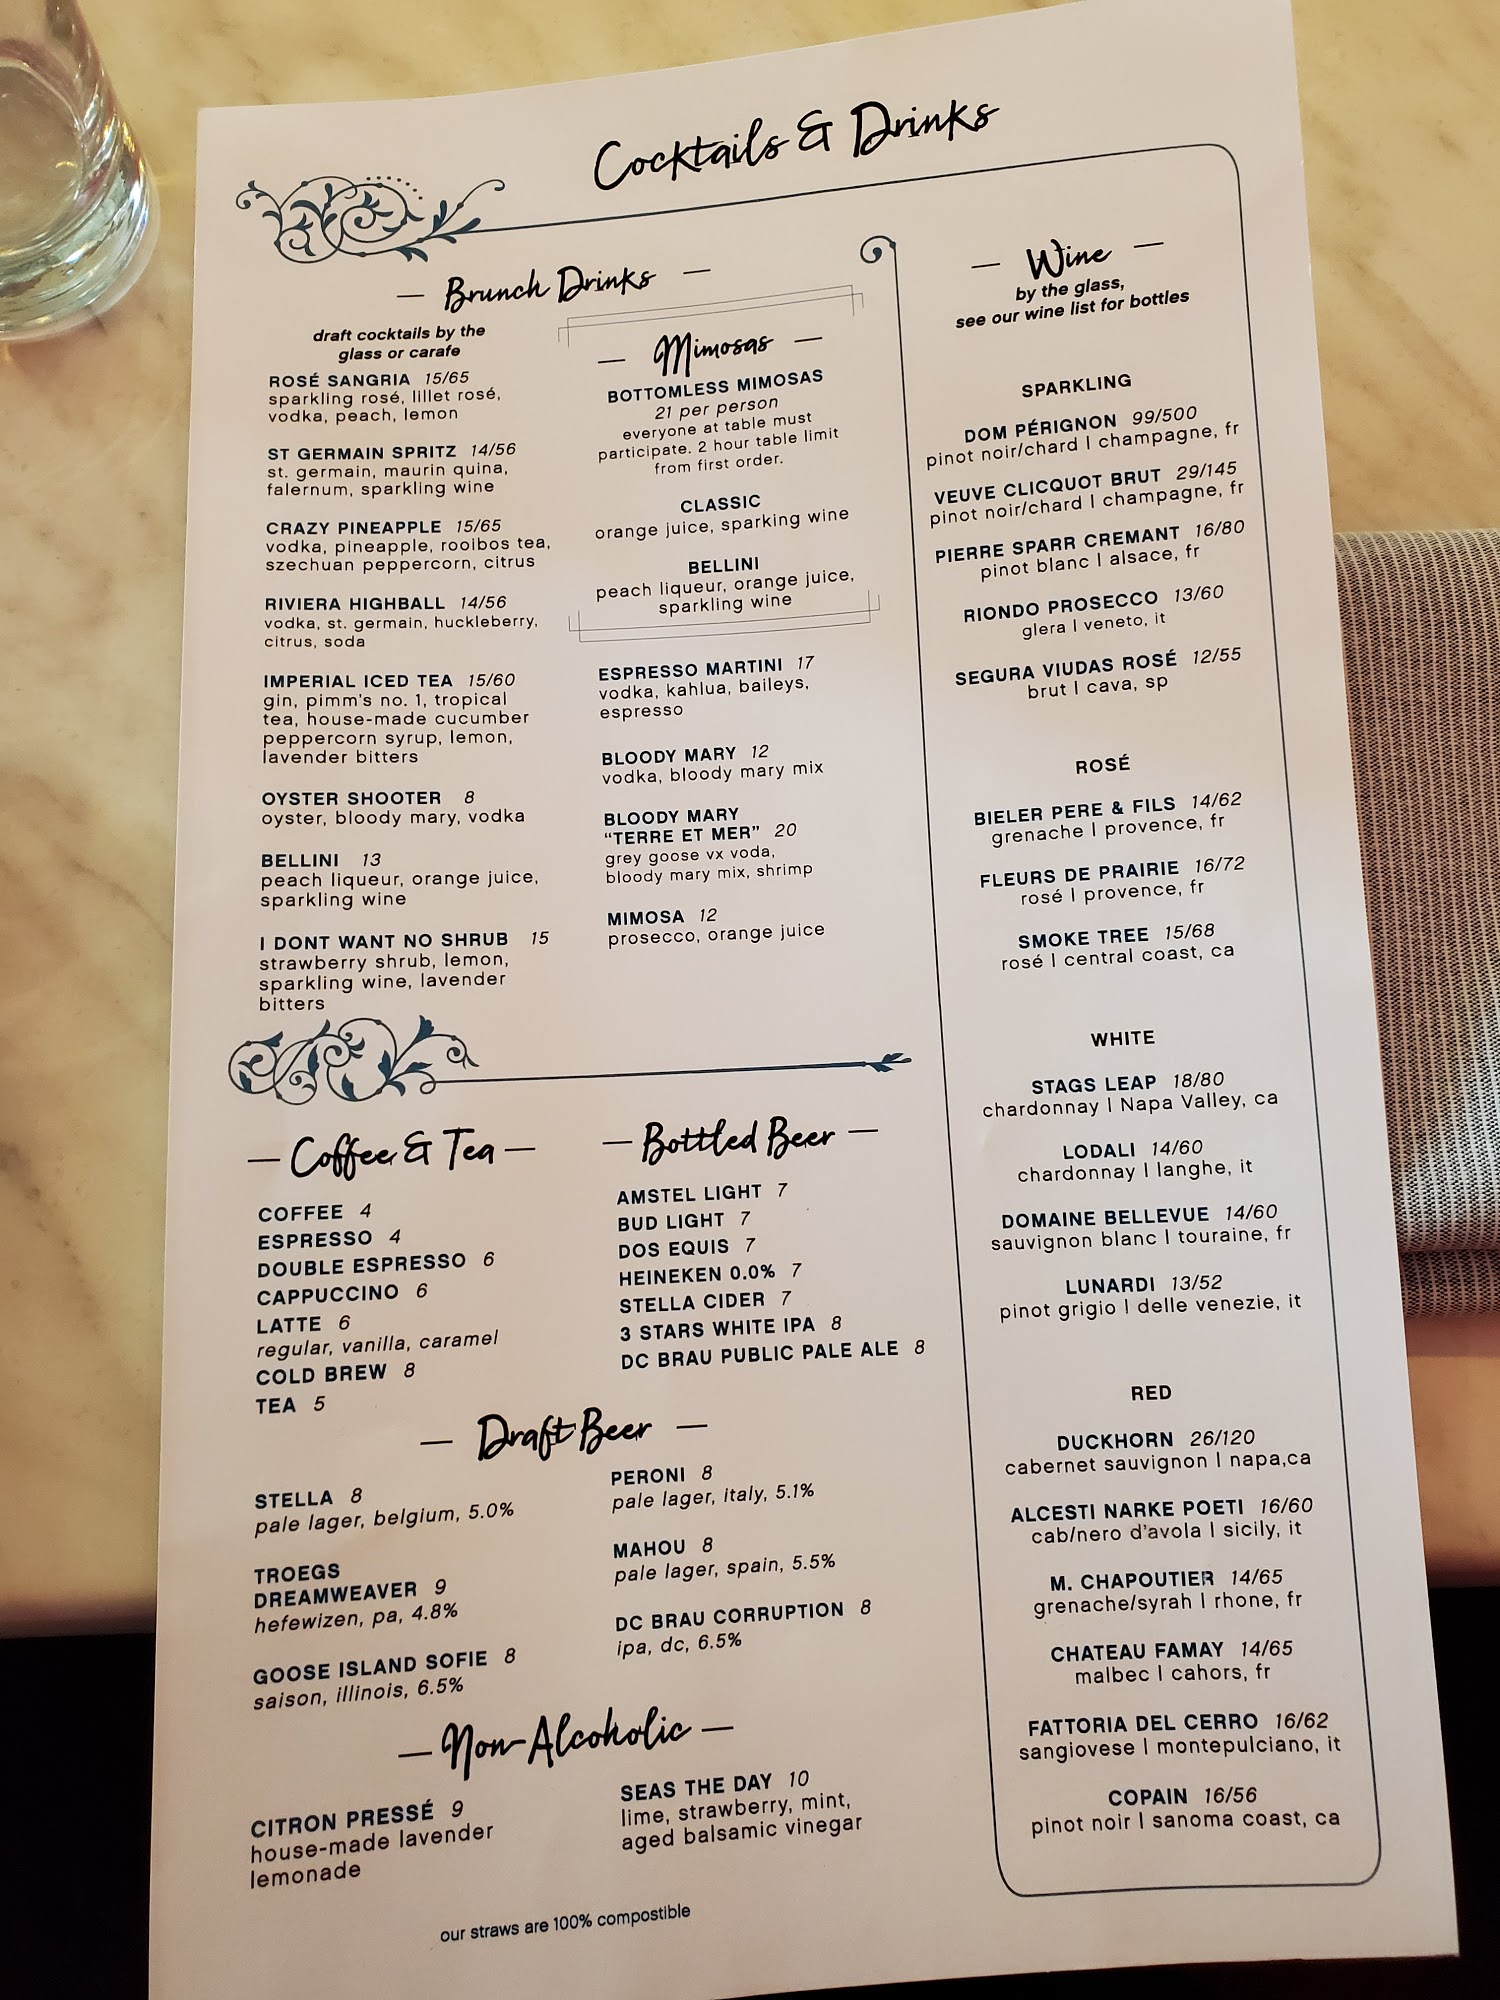 Cocktails & Drinks
Brunch Drinks
draft cocktails by the
glass or carafe
ROSÉ SANGRIA 15/65
sparkling rosé, lillet rosé,
vodka, peach, lemon
ST GERMAIN SPRITZ 14/56
st. germain, maurin quina,
falernum, sparkling wine
CRAZY PINEAPPLE 15/65
vodka, pineapple, rooibos tea,
szechuan peppercorn, citrus
RIVIERA HIGHBALL 14/56
vodka, st. germain, huckleberry,
citrus, soda
IMPERIAL ICED TEA 15/60
gin, pimm's no. 1, tropical
tea, house-made cucumber
peppercorn syrup, lemon,
lavender bitters
OYSTER SHOOTER 8
oyster, bloody mary, vodka
BELLINI 13
peach liqueur, orange juice,
sparkling wine
I DONT WANT NO SHRUB 15
strawberry shrub, lemon,
sparkling wine, lavender
bitters
Mimosas
BOTTOMLESS MIMOSAS
21 per person
everyone at table must
participate. 2 hour table limit
from first order.
CLASSIC
orange juice, sparking wine
BELLINI
peach liqueur, orange juice,
sparkling wine
ESPRESSO MARTINI 17
vodka, kahlua, baileys,
espresso
BLOODY MARY 12
vodka, bloody mary mix
BLOODY MARY
"TERRE ET MER" 20
grey goose vx voda,
bloody mary mix, shrimp
MIMOSA 12
prosecco, orange juice
Coffee & Tea
COFFEE 4
ESPRESSO 4
DOUBLE ESPRESSO 6
CAPPUCCINO 6
LATTE 6
regular, vanilla, caramel
COLD BREW 8
TEA 5
Bottled Beer
AMSTEL LIGHT 7
BUD LIGHT 7
DOS EQUIS 7
HEINEKEN 0.0% 7
STELLA CIDER 7
3 STARS WHITE IPA 8
DC BRAU PUBLIC PALE ALE 8
Draft Beer
STELLA 8
pale lager, belgium, 5.0%
TROEGS
DREAMWEAVER 9
hefewizen, pa, 4.8%
GOOSE ISLAND SOFIE 8
saison, illinois, 6.5%
PERONI 8
pale lager, italy, 5.1%
MAHOU 8
pale lager, spain, 5.5%
DC BRAU CORRUPTION 8
ipa, dc, 6.5%
Non-Alcoholic
CITRON PRESSÉ 9
house-made lavender
lemonade
SEAS THE DAY 10
lime, strawberry, mint,
aged balsamic vinegar
our straws are 100% compostible
Wine
by the glass,
see our wine list for bottles
SPARKLING
DOM PÉRIGNON 99/500
pinot noir/chard | champagne, fr
VEUVE CLICQUOT BRUT 29/145
pinot noir/chard | champagne, fr
PIERRE SPARR CREMANT 16/80
pinot blanc | alsace, fr
RIONDO PROSECCO 13/60
glera | veneto, it
SEGURA VIUDAS ROSÉ 12/55
brut | cava, sp
ROSÉ
BIELER PERE & FILS 14/62
grenache | provence, fr
FLEURS DE PRAIRIE 16/72
rosé | provence, fr
SMOKE TREE 15/68
rosé | central coast, ca
WHITE
STAGS LEAP 18/80
chardonnay | Napa Valley, ca
LODALI 14/60
chardonnay | langhe, it
DOMAINE BELLEVUE 14/60
sauvignon blanc | touraine, fr
LUNARDI 13/52
pinot grigio | delle venezie, it
RED
DUCKHORN 26/120
cabernet sauvignon | napa,ca
ALCESTI NARKE POETI 16/60
cab/nero d'avola | sicily, it
M. CHAPOUTIER 14/65
grenache/syrah | rhone, fr
CHATEAU FAMAY 14/65
malbec | cahors, fr
FATTORIA DEL CERRO 16/62
sangiovese | montepulciano, it
COPAIN 16/56
pinot noir | sanoma coast, ca